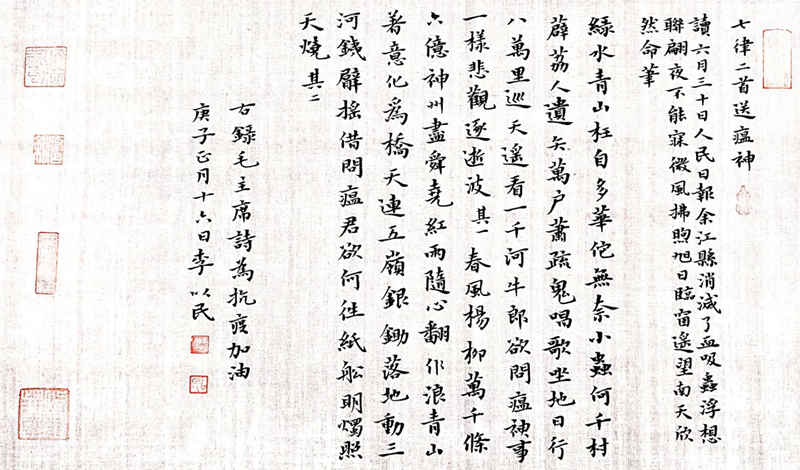 七律二首送瘟神
讀六月三十日人民日報余江縣消滅了血吸蟲浮想
聯翩夜不能寐微風拂煦旭日臨窗遙望南天欣
然命筆
綠水青山枉自多華佗無奈小蟲何千村
薜荔人遺矢萬户蕭疏鬼唱歌坐地日行
八萬里巡天遥看一千河牛郎欲問瘟神事
一樣悲觀逐逝波 其一 春風楊柳萬千條
六億神州盡舜堯紅雨隨心翻作浪青山
著意化爲橋天連五嶺銀鋤落地動三
河鐵臂摇借問瘟君欲何往紙舩明燭照
天燒 其二
右錄毛主席詩為抗疫加油
庚子正月十六日李以民